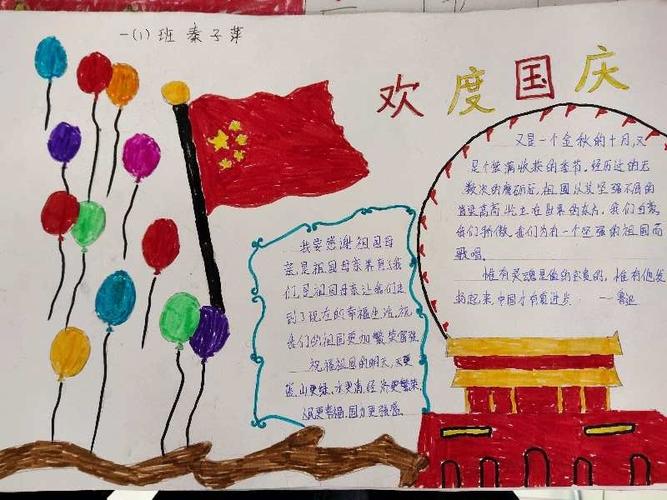 一(1)班 秦子萍
欢度国庆
又是一个金秋的十月,又
是个堂满收获的季节。经历过的无
数次的磨砺后,祖国以其坚强不屈的
高高屹立在世界的东方。我们自豪,
我们骄傲。我们为有一个坚强的祖国而
歌唱。
惟有灵魂是值的宝贵的,惟有他发
扬起来,中国才有真进步。——鲁迅
我要感谢祖国母
亲,是祖国母亲养育了我
们,是祖国母亲让我们走
到了现在的幸福生活。祝
我们的祖国更加繁荣富强
祝福祖国的明天,天更
蓝,山更绿,水更清,经济更繁荣,
人民更幸福,国力更强盛。